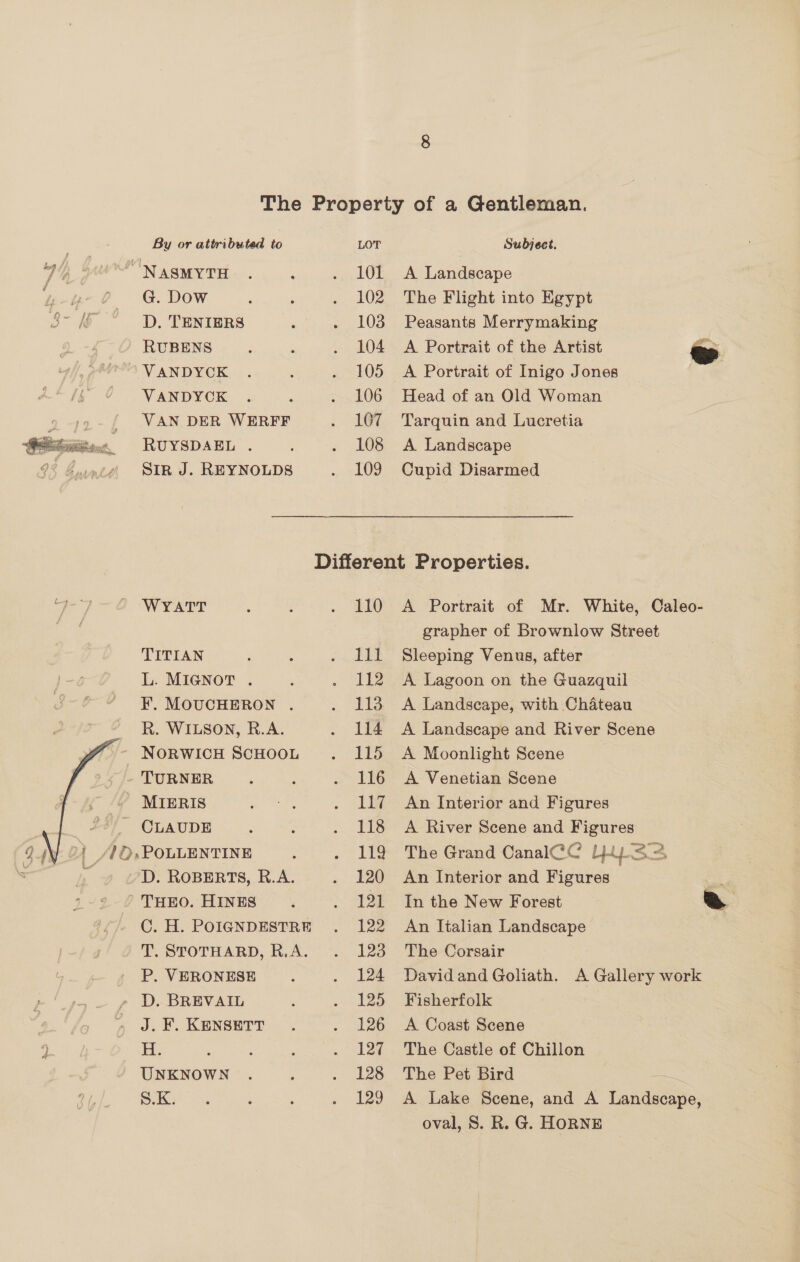 8
The Property of a Gentleman.
By or attributed to LOT Subject.
NASMYTH . . . 101 A Landscape
G. DOW . . . 102 The Flight into Egypt
D. TENIERS . . 103 Peasants Merrymaking
RUBENS . . . 104 A Portrait of the Artist
VANDYCK . . . 105 A Portrait of Inigo Jones
VANDYCK . . . 106 Head of an Old Woman
VAN DER WERFF . 107 Tarquin and Lucretia
RUYSDAEL . . . 108 A Landscape
SIR J. REYNOLDS . 109 Cupid Disarmed
Different Properties.
WYATT . . . 110 A Portrait of Mr. White, Caleo-
grapher of Brownlow Street
TITIAN . . . 111 Sleeping Venus, after
L. MIGNOT . . . 112 A Lagoon on the Guazquil
F. MOUCHERON . . 113 A Landscape, with Château
R. WILSON, R.A. . 114 A Landscape and River Scene
NORWICH SCHOOL . 115 A Moonlight Scene
TURNER . . . 116 A Venetian Scene
MIERIS . . . 117 An Interior and Figures
CLAUDE . . . 118 A River Scene and Figures
POLLENTINE . . 119 The Grand Canal CC 4433
D. ROBERTS, R.A. . 120 An Interior and Figures
THEO. HINES . . 121 In the New Forest
C. H. POIGNDESTRE . 122 An Italian Landscape
T. STOTHARD, R.A. . 123 The Corsair
P. VERONESE . . 124 David and Goliath. A Gallery work
D. BREVAIL . . 125 Fisherfolk
J. F. KENSETT . . 126 A Coast Scene
H. . . . 127 The Castle of Chillon
UNKNOWN . . . 128 The Pet Bird
S.K. . . . 129 A Lake Scene, and A Landscape,
oval, S. R. G. HORNE